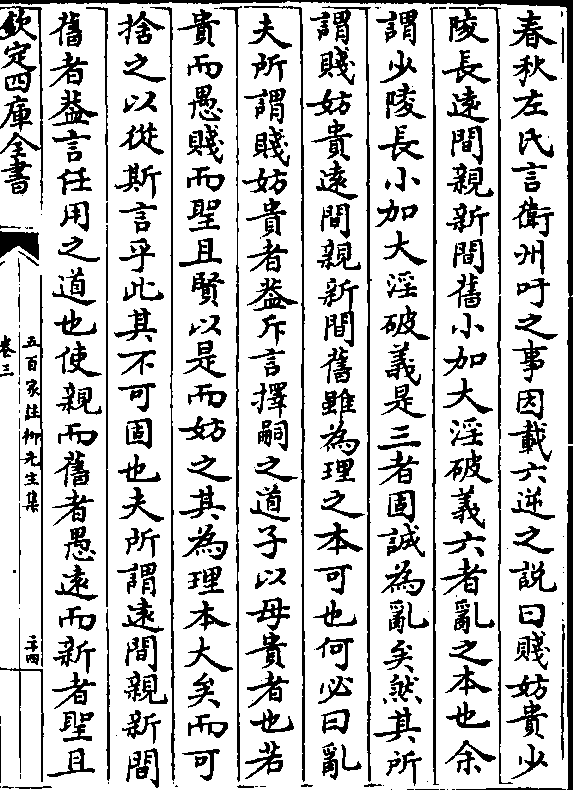 春秋左氏言衛州吁之事因載六逆之説曰賤妨貴少
陵長遠間親新間舊小加大淫破義六者亂之本也余
謂少陵長小加大淫破義是三者固誠為亂矣然其所
謂賤妨貴遠間親新間舊雖為理之本可也何必曰亂
夫所謂賤妨貴者葢斥言擇嗣之道子以母貴者也若
貴而愚賤而聖且賢以是而妨之其為理本大矣而可
捨之以從斯言乎此其不可固也夫所謂遠間親新間
舊者葢言任用之道也使親而舊者愚遠而新者聖且
欽定四庫全書
五百家註柳先生集
卷三
二十四